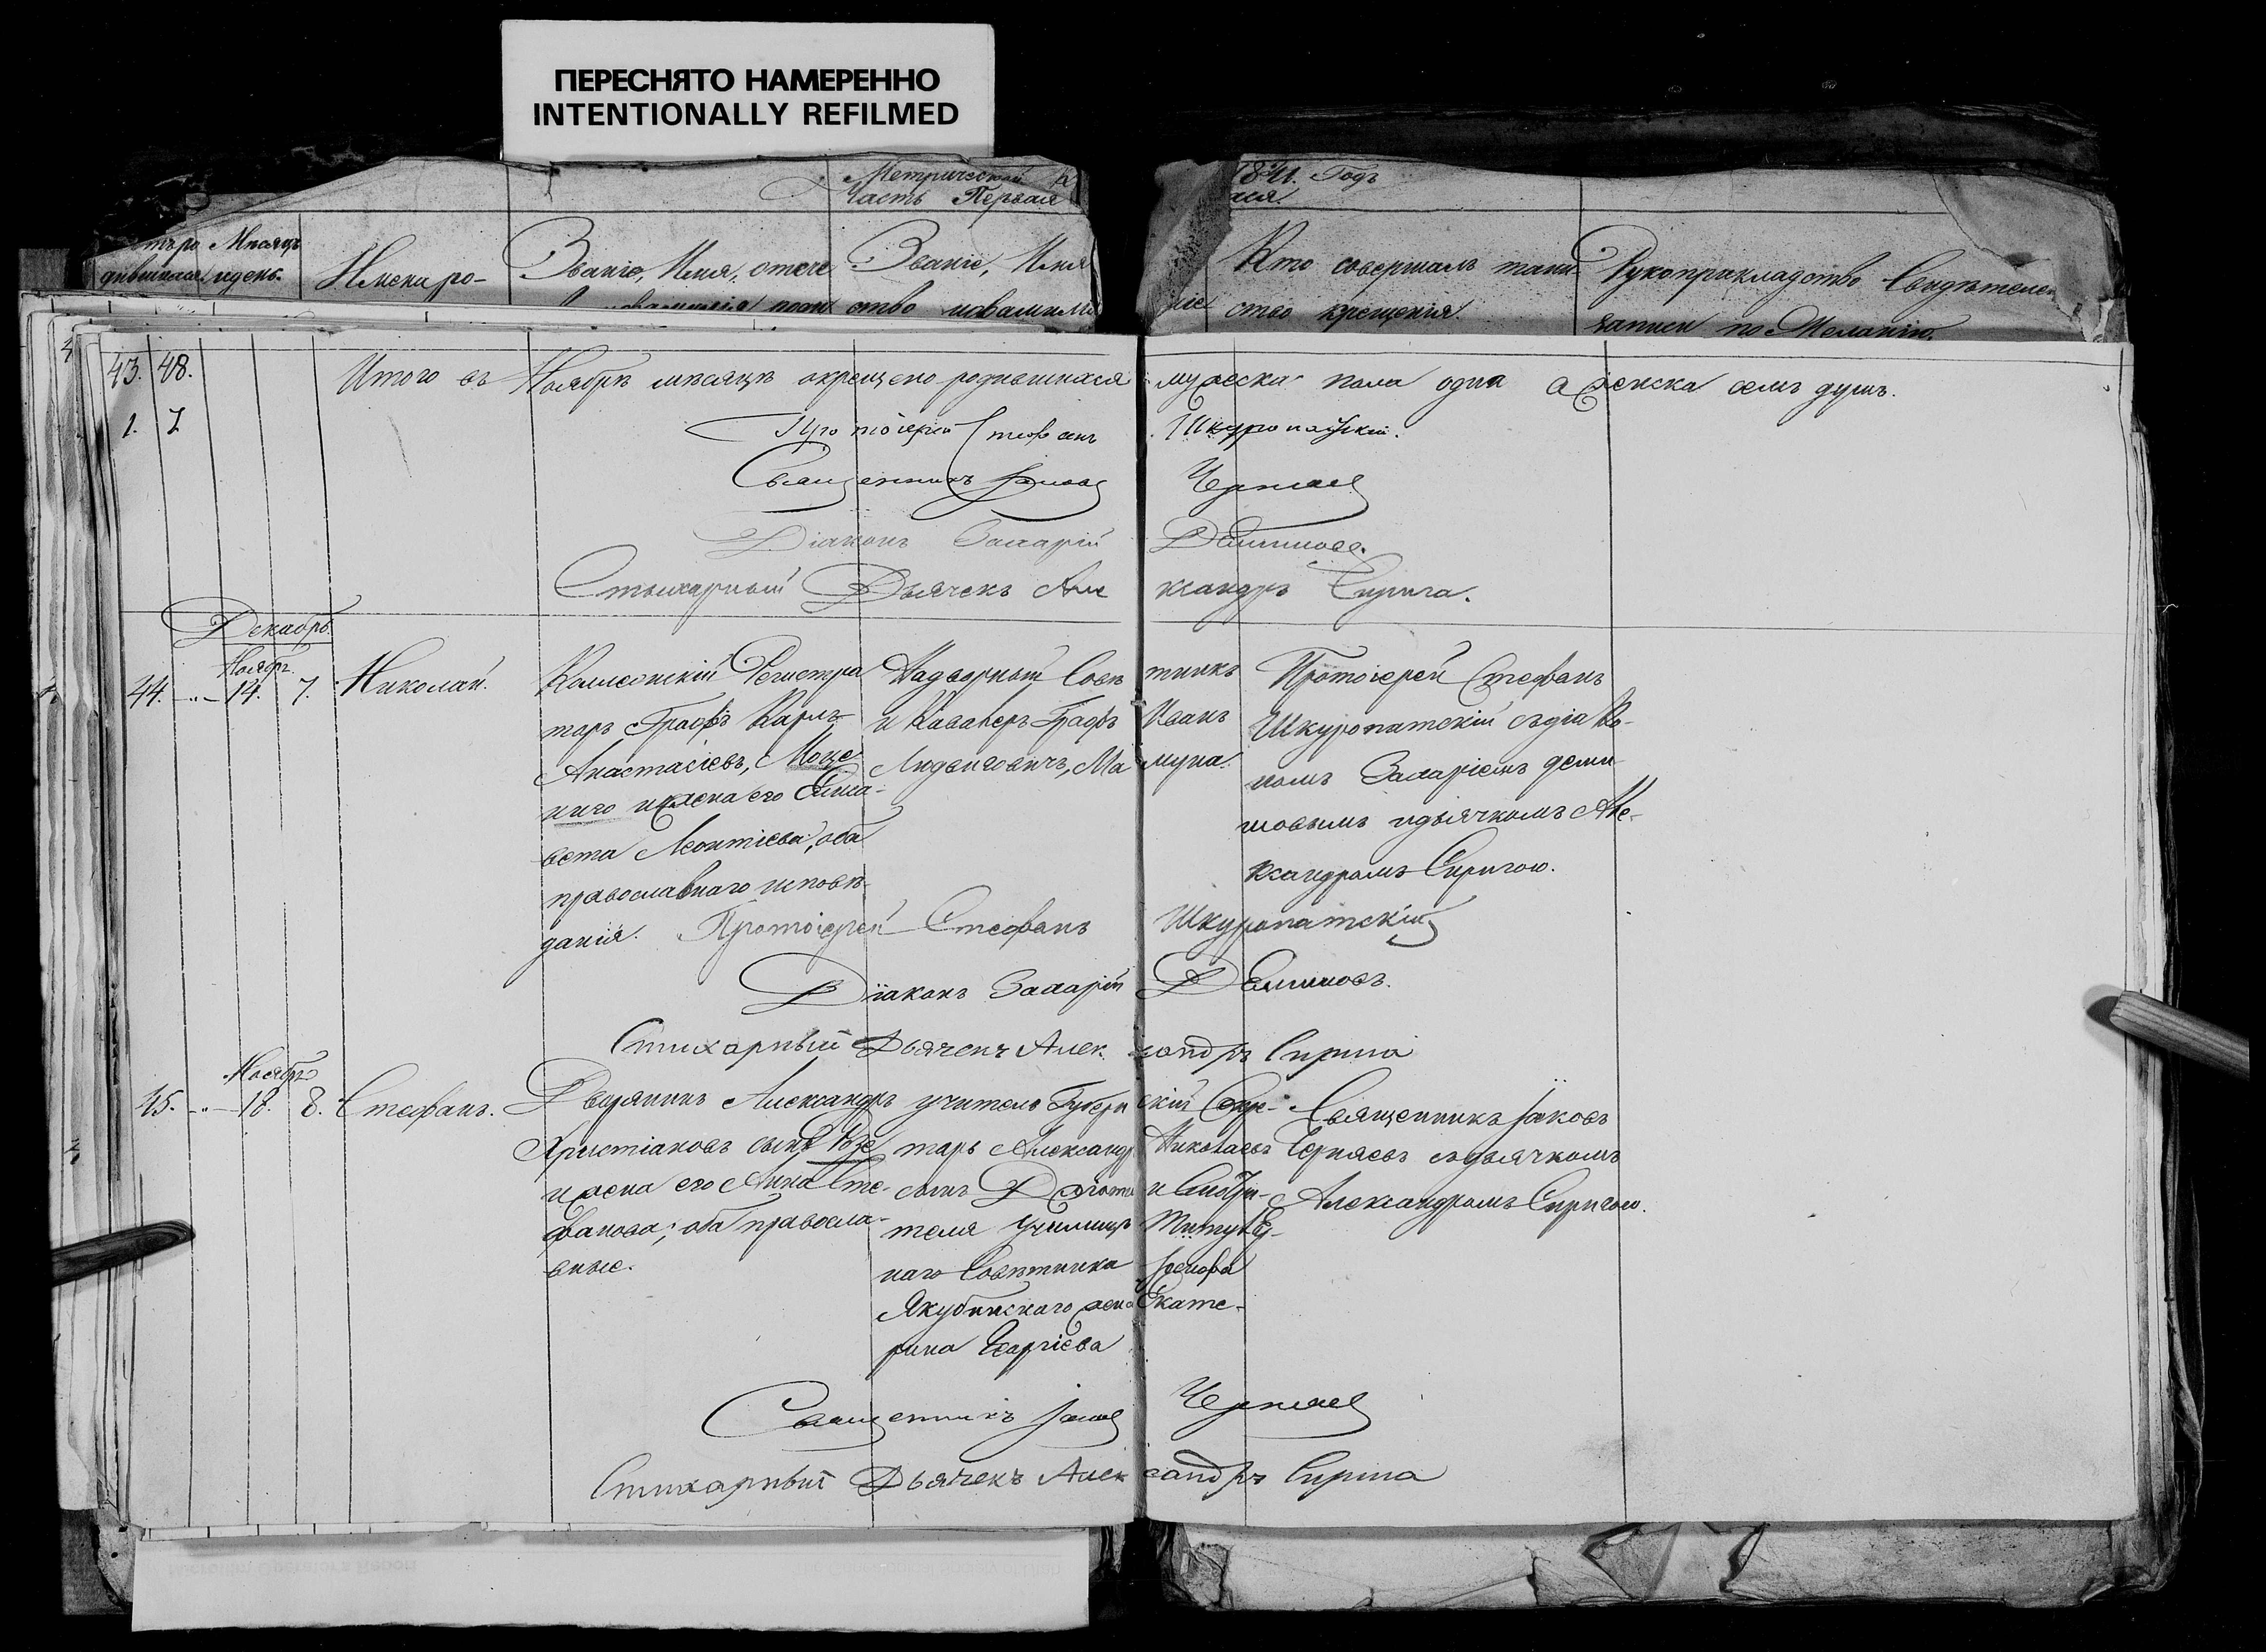 ПЕРЕСНЯТО НАМЕРЕННО
INTENTIONALLY REFILMED
Метрической
Часть Первая
1841. Годъ
Мѣсяцъ
и день.
Имена ро-
Званіе, Имя, отече
Званіе, Имя
Кто совершалъ таин-
ство крещенія.
Рукоприкладство Свидѣтелей
записи по Желанію.
43. 48. Итого въ Ноябрѣ мѣсяцѣ окрещено родившихся мужеска пола одна а женска семь душъ.
1. 7
Протоіерей Стефанъ Шкуропатскій.
Священникъ Іаковъ Черняев
Діаконъ Захарій
Стихарный Дьячекъ Александръ Сирига.
Декабрь
Ноябр.
44. -"- 14. 7. Николай.
Колежскій Регистра
торъ Графъ Карлъ
Анастасіевъ, Моце
ниго и жена его Елиса-
вета Леонтіева, оба
православнаго исповѣ-
данія.
Надворный Совѣтникъ
и Кавалеръ Графъ Иванъ
Людвиговичъ, Мамуна.
Протоіерей Стефанъ
Шкуропатскій съ діако-
номъ Захаріемъ
и дьячкомъ Але-
ксандромъ Сиригою.
Протоіерей Стефанъ Шкуропатскій
Діаконъ Захарій
Стихарный Дьячекъ Александръ Сирига
Ноябр.
45. -"- 18. 8. Стефанъ.
Дворянинъ Александръ
Христіановъ сынъ Розе
и жена его Анна Сте-
фанова; оба правосла-
вные.
учитель Губернскій Секре-
тарь Александръ Николаевъ
сынъ и Смотри-
теля Училищъ Титуляр-
наго Совѣтника Іосифа
Якубинскаго жена Екате-
рина Георгіева
Священникъ Іаковъ
Черняевъ съ дьячкомъ
Александромъ Сиригою.
Священникъ Іаковъ Черняев
Стихарный Дьячекъ Александръ Сирига